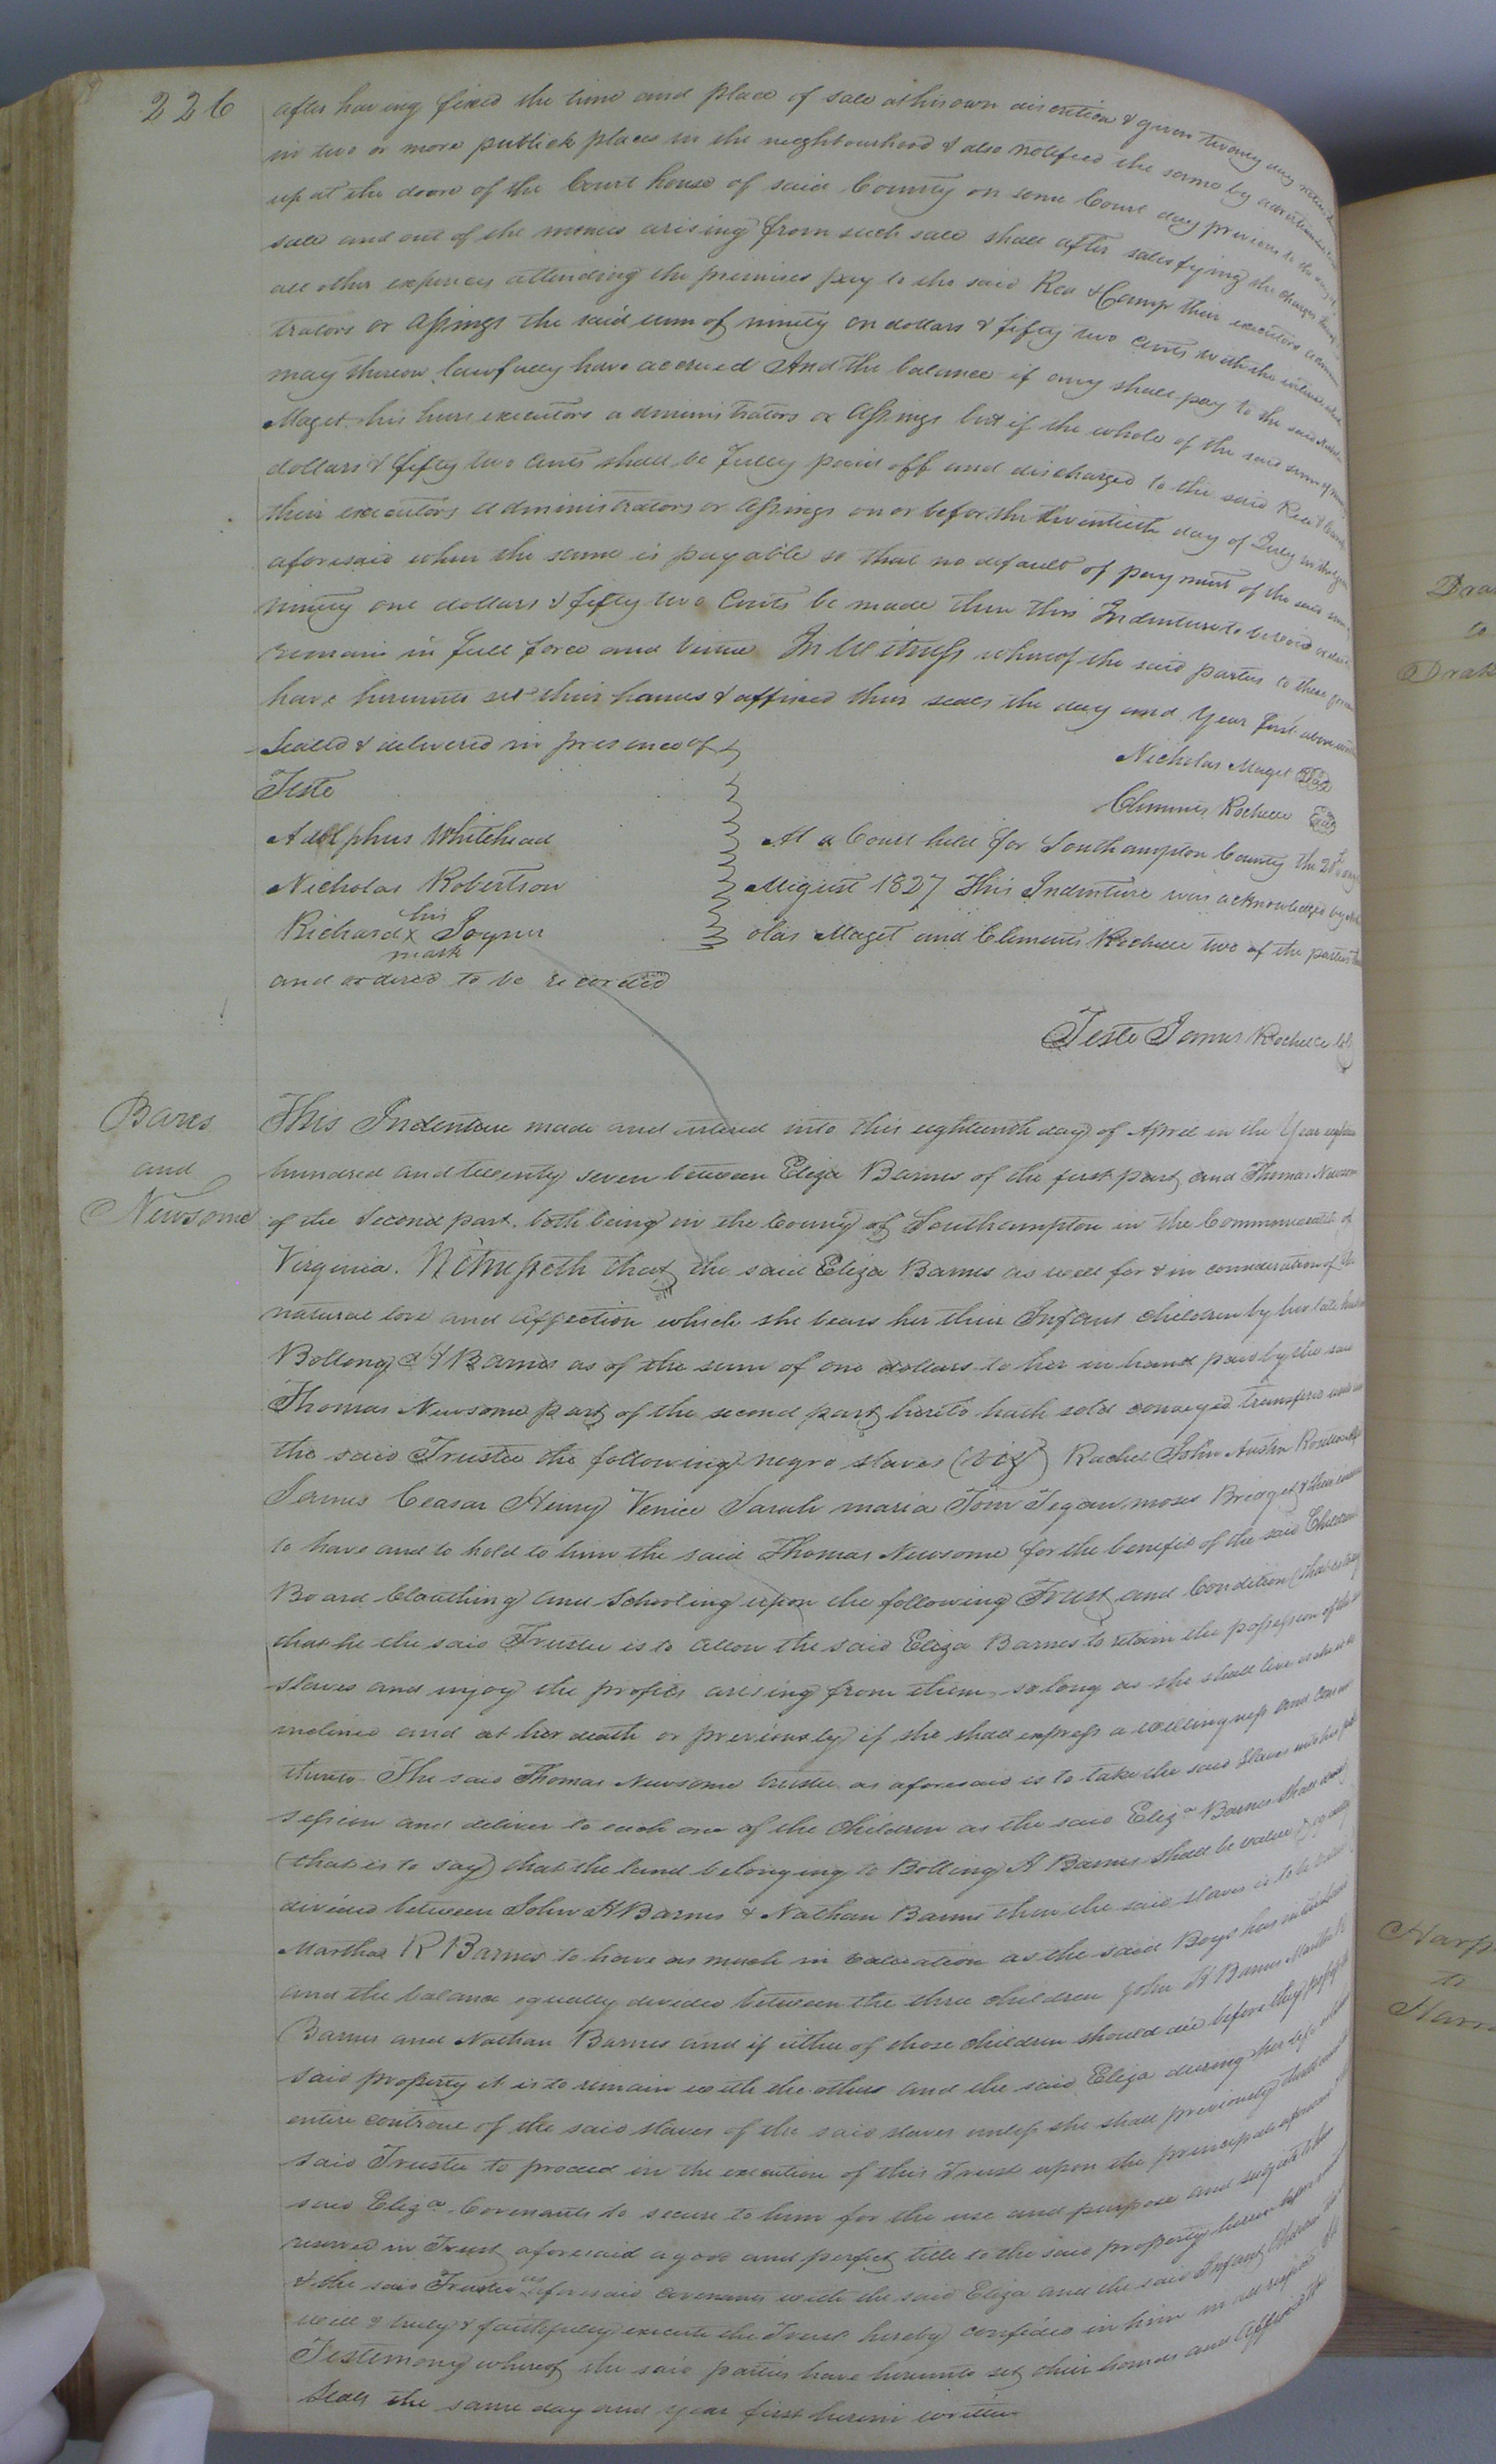 226
after having fixed the time and place of sale at his own discretion & given twenty days notice
in two or more publick places in the neighbourhood & also notified the same by advertisement
up at the door of the Court house of said County on some Court day previous to the day of
sale and out of the monies arising from such sale shall after satisfying the charges thereof &
all other expences attending the premises pay to the said Rea & Camp their executors adminis
trators or assings the said sum of ninety on dollars & fifty two cents with the interest which
may thereon lawfully have accrued And the balance if any shall pay to the said
Maget his heirs executors administrators or assings but if the whole of the said sum of
dollars & fifty two cents shall be fully paid off and discharged to the said Rea & Camp
their executors administrators or assings on or before the twentieth day of July in the year
aforesaid when the same is payable so that no default of payment of the said sum of
ninety one dollars & fifty two Cents be made then this Indenture to be void or else
remain in full force and virtue In Witness whereof the said parties to these presents
have hereunto set their hands & affixed their seals the day and year first above
Sealed & delivered in presence of
Nicholas Maget Seal
Teste
Clemmis Rochelle Seal
Adolphus Whitehead
At a Court held for Southampton County the 20th day
Nicholas Robertson
August 1827 This Indenture was acknowledged by Nich
his
Richard x Joyner
mark
olas Maget and Clements Rochelle two of the parties
and ordered to be recorded
Teste James Rochelle Clk
Bares
and
Newsome
This Indenture made and entered into this eighteenth day of April in the Year eighteen
hundred and twenty seven between Eliza Barnes of the first part and Thomas Newsom
of the Second part. both being in the County of Southampton in the Commonwealth of
Virginia. Witnesseth that the said Eliza Barnes as well for & in consideration of the
natural love and affection which she bears her three Infant children by her late husband
Bolling H Barnes as of the sum of one dollars to her in hand paid by the said
Thomas Newsome part of the second part hereto hath sold conveyed transfered and
the said Trustee the following negro slaves (viz) Rachel John Austin
James Ceasar Henry Venice Sarah maria Tom Tegan moses Bridget & their
to have and to hold to him the said Thomas Newsome for the benefit of the said Children
Board Cloathing and Schooling upon the following Trust and Condition (that is to say
that he the said Trustee is to allow the said Eliza Barnes to retain the possession of the
slaves and injoy the profits arising from them, so long as she shall live
inclined and at her death or previously if she shall express a willingness and
thereto. The said Thomas Newsome trustee as aforesaid is to take the said Slaves into his pos
session and deliver to each one of the children as the said Eliza Barnes shall
(that is to say) that the land belonging to Bolling H Barnes shall be value & equally
divided between John H Barnes & Nathan Barnes then the said slaves is to be
Martha R Barnes to have as much in valuation as the said Boys has
and the balance equally divided between the three children John H Barnes Martha R
Barnes and Nathan Barnes and if either of those children should die before they possess
said property it is to remain with the others and the said Eliza during her life
entire controul of the said slaves of the said slaves unless she shall previously
said Trustee to proceed in the execution of this Trust upon the principals
said Eliza Covenants to secure to him for the use and purpose and subject to
reserved in Trust aforesaid a good and perfect title to the said property herein before
& the said Trustee as aforesaid covenants with the said Eliza and the said Infant Children
well & truly & faithfully execute the Trust hereby confided in him in all respects
Testimony whereof the said parties have hereunto set their hands and affixed
Seals the same day and year first herein written